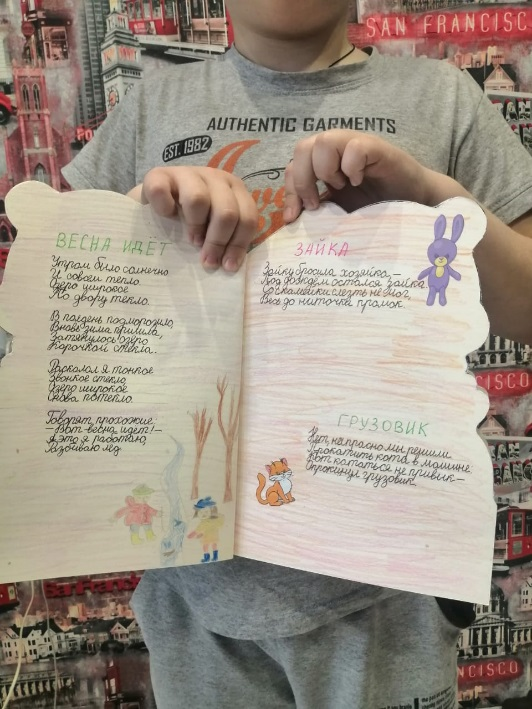 SAN FRANCISCO
AUTHENTIC GARMENTS
EST. 1982
ВЕСНА ИДЕТ
Утром было солнечно
И совсем тепло.
Озеро широкое
По двору текло.
В полдень подморозило,
Вновь зима пришла,
Затянулось озеро
Корочкой стекла.
Расколол я тонкое
Звонкое стекло
Озеро широкое
Снова потекло.
Говорят прохожие:
–Вот весна идет!–
А это я работаю,
Разбиваю лед
ЗАЙКА
Зайку бросила хозяйка,–
Под дождем остался зайка.
Со скамейки слезть не мог,
Весь до ниточки промок.
ГРУЗОВИК
Нет, напрасно мы решили
Прокатить кота в машине:
Кот кататься не привык–
Опрокинул грузовик.
CISCO
NCISCO